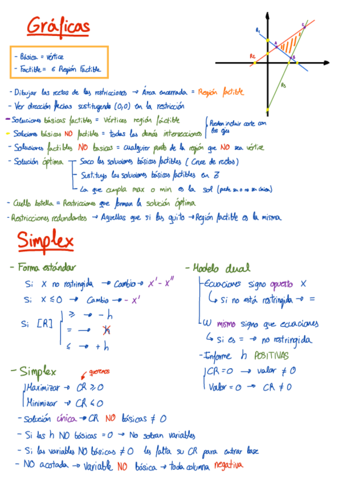 Gráficas
- Básica = vértice
- Factible = ∈ Región factible
- Dibujar las rectas de las restricciones → Área encerrada = Región factible
- Ver dirección flechas sustituyendo (0,0) en la restricción
- Soluciones básicas factibles = Vértices región factible
- Soluciones básicas NO factibles = todas las demás intersecciones
Pueden incluir corte con los ejes
- Soluciones factibles NO básicas = cualquier punto de la región que NO sea vértice
- Solución óptima
Saco las soluciones básicas factibles (Cruce de rectas)
Sustituyo las soluciones básicas factibles en Z
La que cumpla max o min es la sol
- Cuello botella = Restricciones que forman la solución óptima
- Restricciones redundantes → Aquellas que si las quito → Región factible es la misma.
Simplex
- Forma estándar
Si X no restringida → Cambio → X' - X''
Si X ≤ 0 → Cambio → - X'
Si [R]
≥ → - h
= → X
≤ → + h
- Modelo dual
Ecuaciones signo opuesto X
↳ Si no está restringida → =
W mismo signo que ecuaciones
↳ Si es = → no restringida
- Informe h POSITIVAS
CR = 0 → valor ≠ 0
Valor = 0 → CR ≠ 0
- Simplex
Maximizar → CR ≥ 0
Minimizar → CR ≤ 0
- Solución única → CR NO básicas ≠ 0
- Si las h NO básicas = 0 → No sobran variables
- Si las variables NO básicas ≠ 0 les falta su CR para entrar base
- NO acotada → Variable NO básica → toda columna negativa